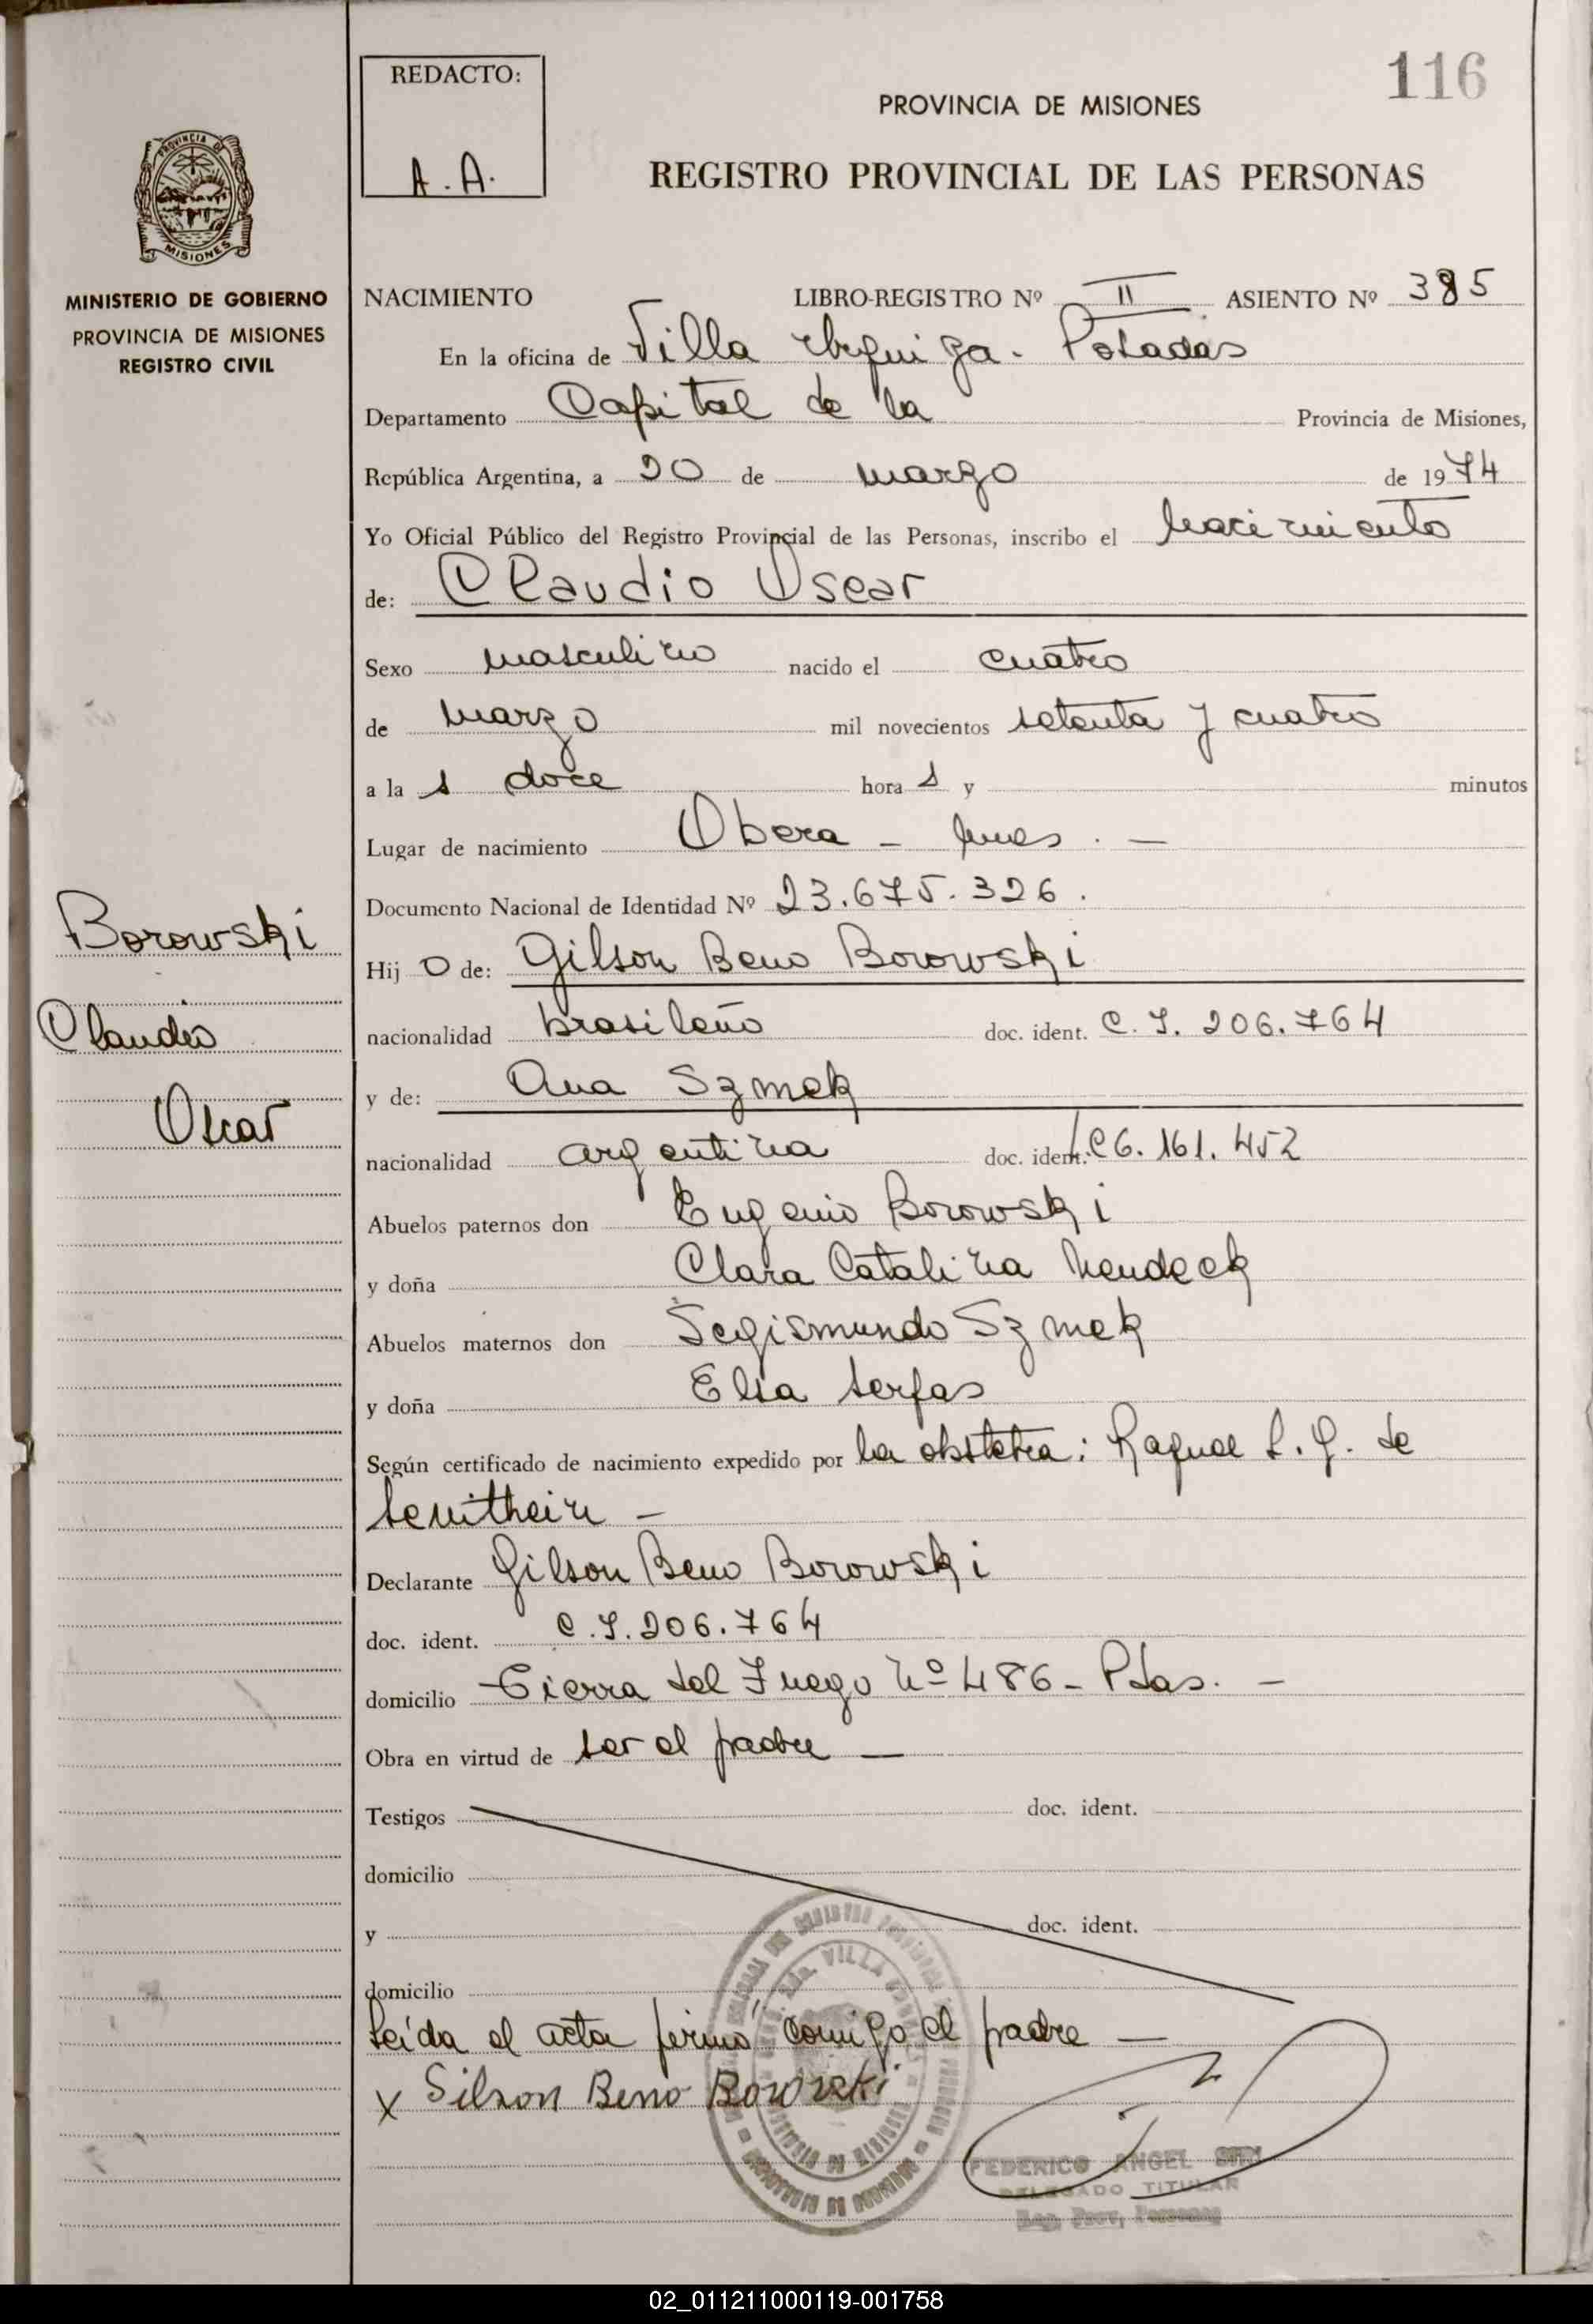 116
REDACTO:
A. A.
PROVINCIA DE MISIONES
REGISTRO PROVINCIAL DE LAS PERSONAS
PROVINCIA DE
MISIONES
MINISTERIO DE GOBIERNO
PROVINCIA DE MISIONES
REGISTRO CIVIL
NACIMIENTO LIBRO-REGISTRO Nº II ASIENTO Nº 385
En la oficina de Villa Urquiza - Posadas
Departamento Capital de la Provincia de Misiones,
República Argentina, a 20 de marzo de 1974
Yo Oficial Público del Registro Provincial de las Personas, inscribo el nacimiento
de: Claudio Oscar
Sexo masculino nacido el cuatro
de marzo mil novecientos setenta y cuatro
a la s doce hora s y minutos
Lugar de nacimiento Obera -
Documento Nacional de Identidad Nº 23.675.326.
Borowski
Hij o de: Gilson Beno Borowski
Claudio
nacionalidad brasileño doc. ident. C. I. 206.764
Oscar
y de: Ana Szmek
nacionalidad argentina doc. ident. LC 6.161.452
Abuelos paternos don Eugenio Borowski
y doña Clara Catalina
Abuelos maternos don Segismundo Szmek
y doña Elsa Serfas
Según certificado de nacimiento expedido por la obstetra: Raquel L. G. de
Declarante Gilson Beno Borowski
doc. ident. C. I. 206.764
domicilio Tierra del Fuego Nº 486 - Pdas. -
Obra en virtud de ser el padre -
Testigos doc. ident.
domicilio
y doc. ident.
domicilio
Leída el acta firmó conmigo el padre -
x Gilson Beno Borowski
FEDERICO ANGEL
DELEGADO TITULAR
Reg. Prov. Personas
02_011211000119-001758